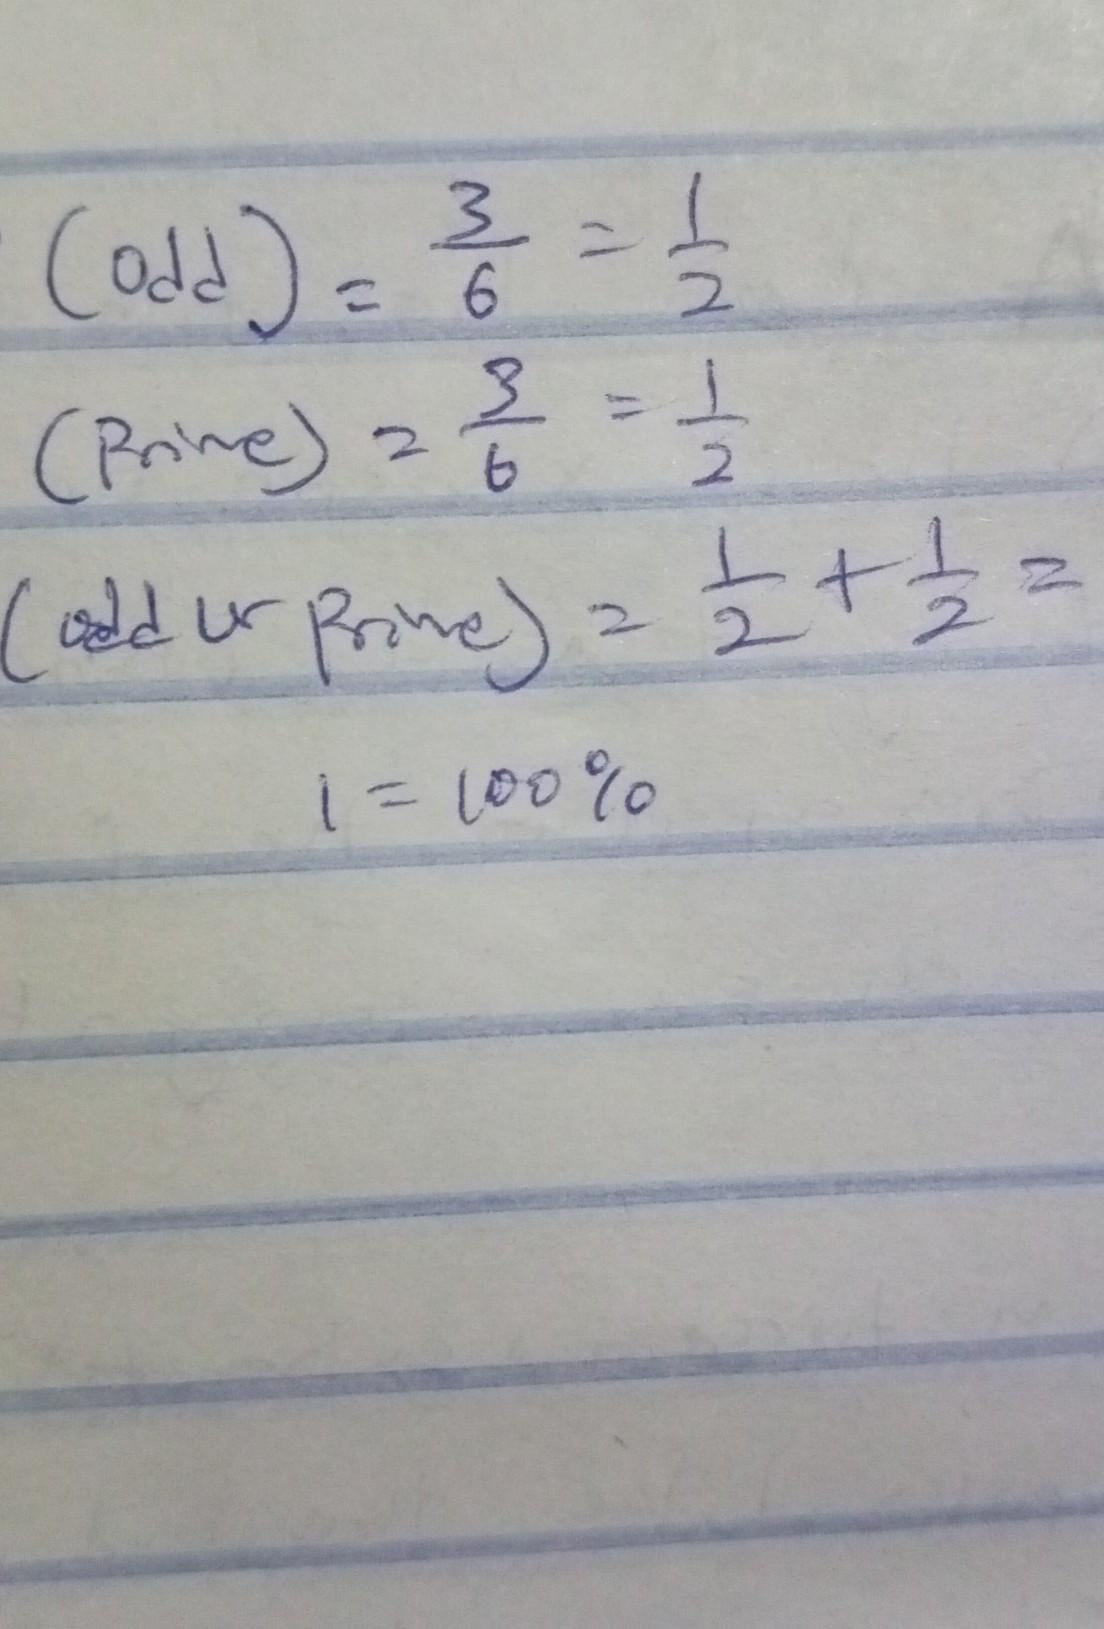 (Odd) = 3/6 = 1/2
(Prime) = 3/6 = 1/2
(odd or Prime) = 1/2 + 1/2 =
1 = 100%